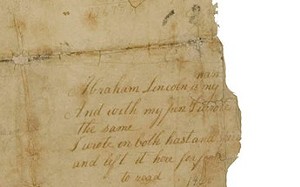 nam
Abraham Lincoln is my
And with my pen I wrote
the same
I wrote in both hast and
and left it here for
to read